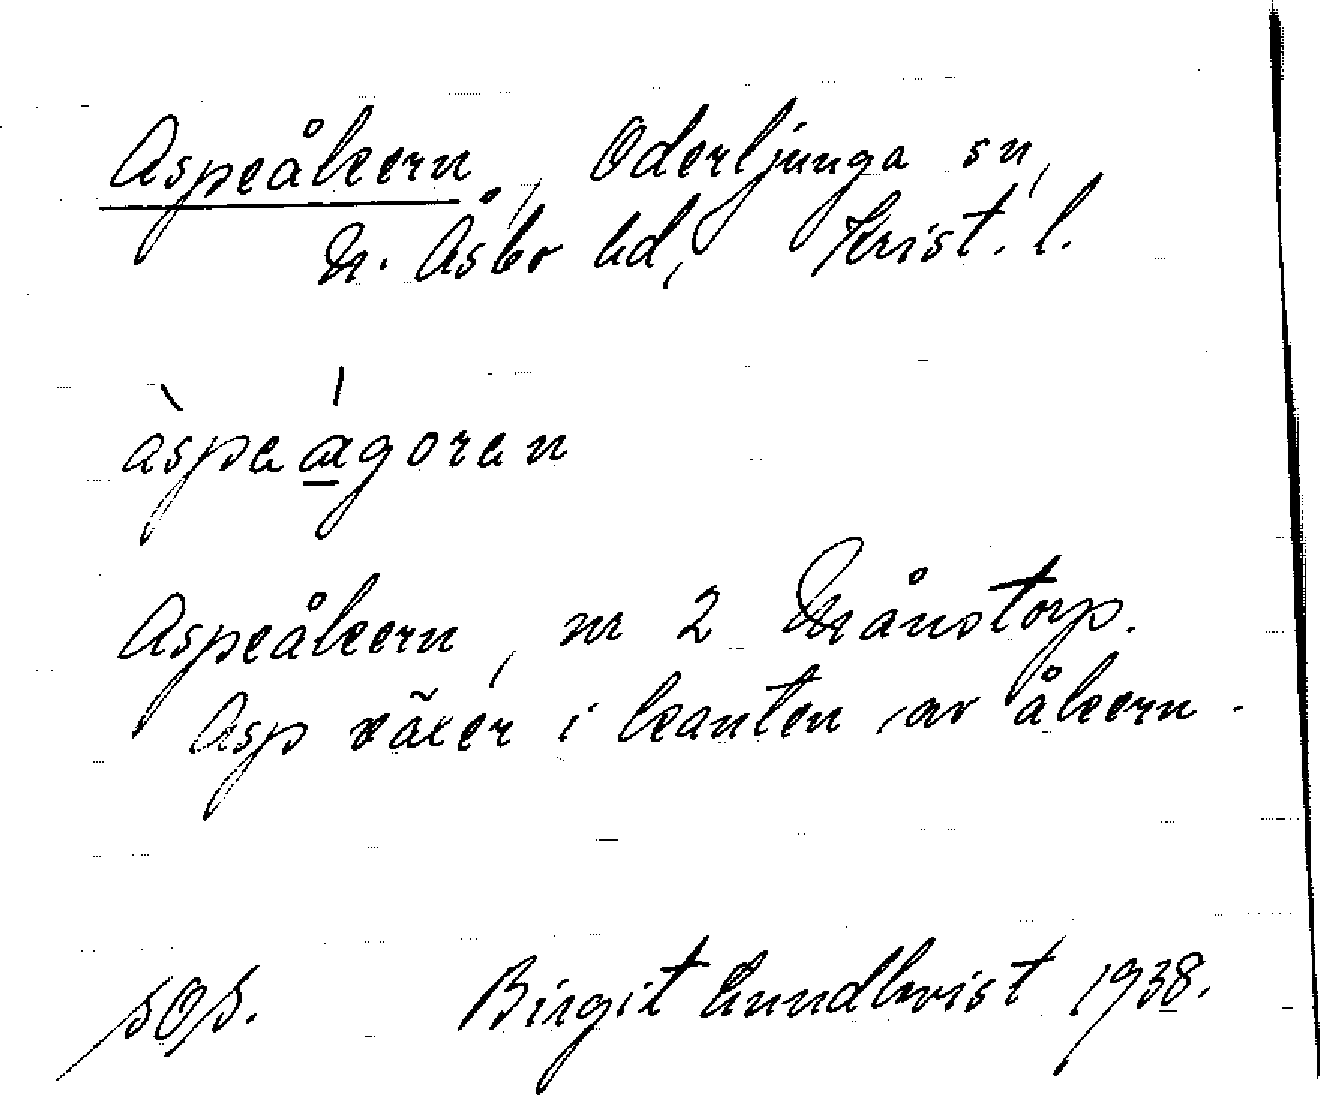 Aspeåkern, Oderljunga sn,
N. Åsbo hd, Krist. l.
àspaágoran
Aspeåkern, nr 2 Månstorp.
Asp växer i kanten av åkern.
SOS. Birgit Lundkvist 1938.